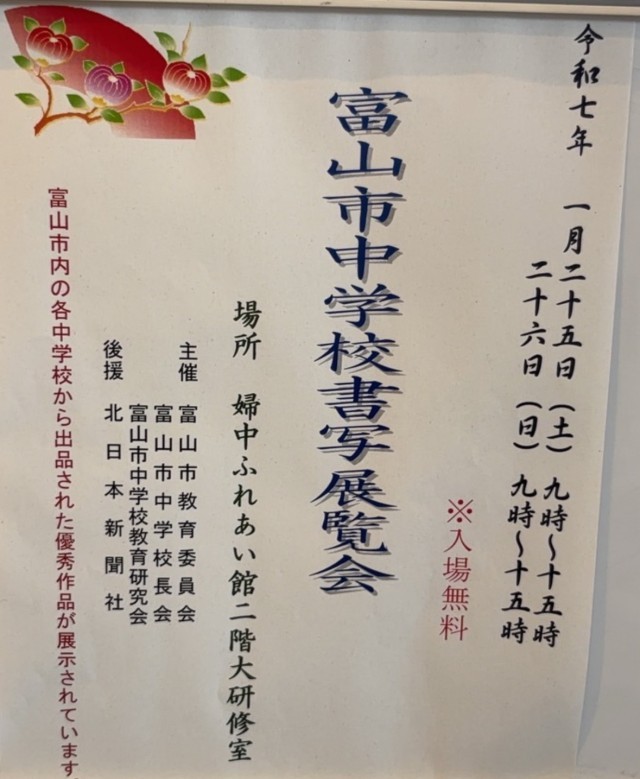 令和七年　一月二十五日（土）九時～十五時
二十六日（日）九時～十五時
※入場無料
富山市中学校書写展覧会
場所　婦中ふれあい館二階大研修室
主催　富山市教育委員会
富山市中学校長会
富山市中学校教育研究会
後援　北日本新聞社
富山市内の各中学校から出品された優秀作品が展示されています。